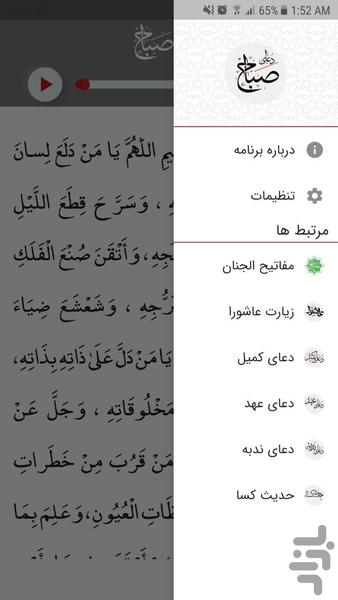 52% 1:52 AM
صباح
دعای صباح
درباره برنامه
تنظیمات
مرتبط ها
مفاتیح الجنان
زیارت عاشورا
دعای کمیل
دعای عهد
دعای ندبه
حدیث کسا
اللّٰهُمَّ یَا مَنْ دَلَعَ لِسانَ
، وَسَرَّحَ قِطَعَ اللَّیْلِ
، وَأَتْقَنَ صُنْعَ الْفَلَكِ
، وَشَعْشَعَ ضِیَاءَ
یَا مَنْ دَلَّ عَلیٰ ذَاتِهِ بِذَاتِهِ،
مَخْلُوقَاتِهِ ، وَجَلَّ عَنْ
مَنْ قَرُبَ مِنْ خَطَراتِ
الْعُیُونِ، وَعَلِمَ بِمَا
بازار